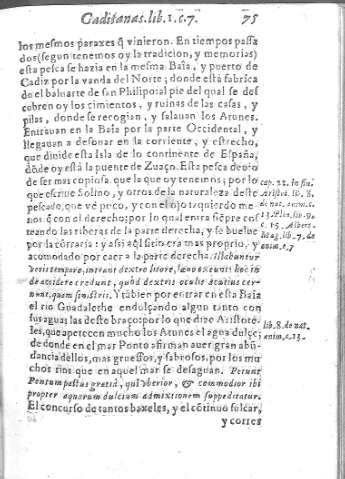 Gaditanas. lib. 1. c. 7. 75
los mesmos paraxes q̃ vinieron. En tiempos passa
dos (segun tenemos oy la tradicion, y memorias)
esta pesca se hazia en la mesma Baîa, y puerto de
Cadiz por la vanda del Norte; donde està fabrica
do el baluarte de san Philipo; al pie del qual se des
cubren oy los cimientos, y ruinas de las casas, y
pilas, donde se recogian, y salauan los Atunes.
Entrauan en la Baîa por la parte Occidental, y
llegauan a desouar en la corriente, y estrecho,
que diuide esta Isla de lo continente de España,
dõde oy està la puente de Zuaço. Esta pesca deuio
de ser mas copiosa, que la que oy tenemos; por lo
que escriue Solino, y otros de la naturaleza deste
pescado, que vè poco, y con el ojo izquierdo me
nos q̃ con el derecho; por lo qual entra siẽpre cos
teando las riberas de la parte derecha, y se buelue
por la cõtraria: y assi aq̃l sitio era mas proprio, y
acomodado por caer a la parte derecha. Illabuntur
veris tempore, intrant dextro litore, læuo exeunt: hoc in
de accidere credunt, quòd dextris oculis acutius cer-
nunt, quam sinistris. Y tãbien por entrar en esta Baîa
el rio Guadalethe endulçando algun tanto con
sus aguas las deste braço: por lo que dize Aristote-
les, que apetecen mucho los Atunes el agua dulce;
de donde en el mar Ponto afirman auer gran abũ-
dancia dellos, mas gruessos, y sabrosos, por los mu
chos rios que en aquel mar se desaguan. Petunt
Pontum pastus gratia, qui vberior, & commodior ibi
propter aquarum dulcium admixtionem suppeditatur.
El concurso de tantos baxeles, y el cõtinuo sulcar,
y corres
cap. 22. in fin.
Aristot. lib. 8.
de nat. anim. c.
13. Plin. lib. 9.
c. 15. Albert.
Mag. lib. 7. de
anim. c. 7
lib. 8. de nat.
anim. c. 13.